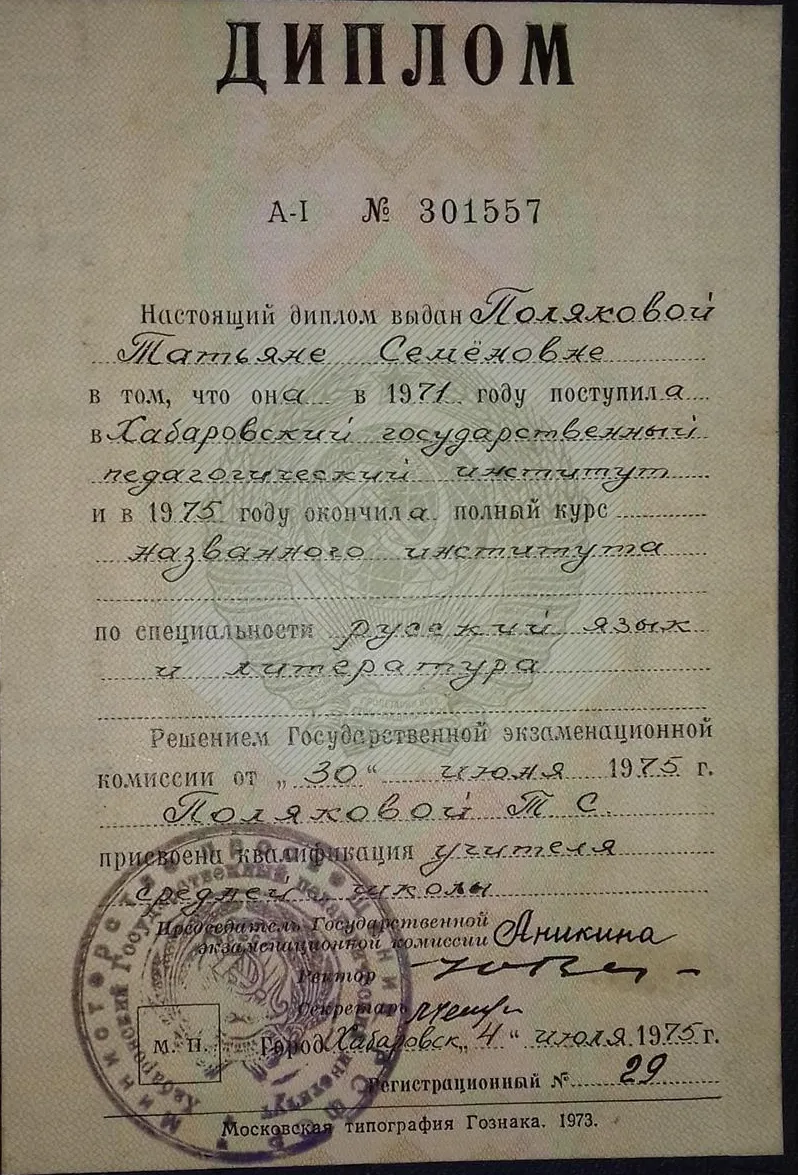 ДИПЛОМ
А-I № 301557
Настоящий диплом выдан Поляковой
Татьяне Семёновне
в том, что она в 1971 году поступила
в Хабаровский государственный
педагогический институт
и в 1975 году окончила полный курс
названного института
по специальности русский язык
и литература
Решением Государственной экзаменационной
комиссии от „30“ июня 1975 г.
Поляковой Т С.
присвоена квалификация учителя
средней школы
Председатель Государственной
экзаменационной комиссии Аникина
Ректор
Секретарь
М. П. Город Хабаровск „4“ июля 1975 г.
Регистрационный № 29
Московская типография Гознака. 1973.